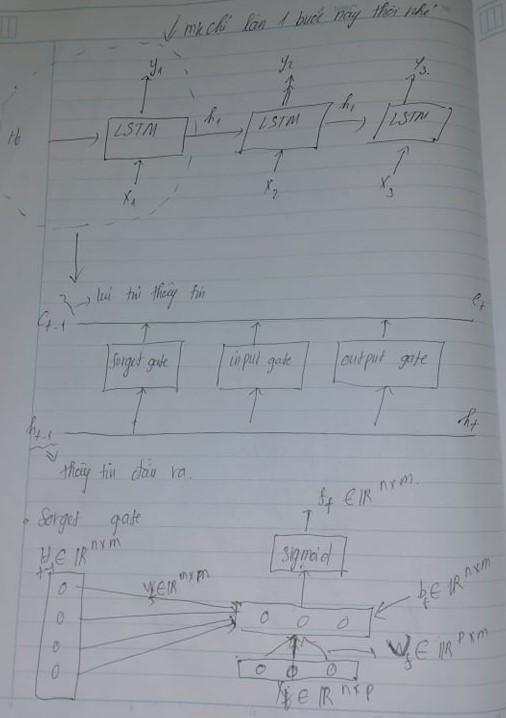 ↓ mk chỉ làm 1 bước này thôi nhé
y1 y2 y3
h1 h1
LSTM LSTM LSTM
x1 x2 x3
→ lưu trữ thông tin
C t-1 C t
forget gate input gate output gate
h t-1 h t
thông tin đầu ra.
f f ∈ ℝ n×m
• Forget gate
H t-1 ∈ ℝ n×m
sigmoid
∈ ℝ m×m
b f ∈ ℝ n×m
W f ∈ ℝ p×m
∈ ℝ n×p